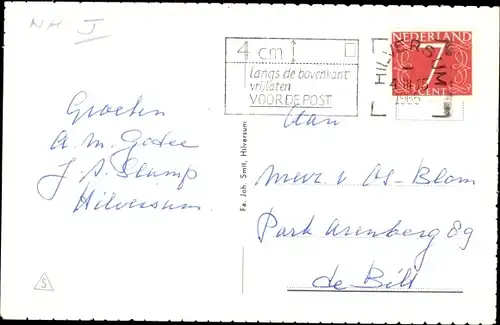 NH J
4 cm
langs de bovenkant
vrijlaten
VOOR DE POST
HILVERSUM
1966
NEDERLAND
7
CENT
Groeten
A. M.
J. A. Slump
Hilversum.
Fa. Joh. Smit, Hilversum
Aan
Mevr v Os-Blom
Park Arenberg 89
de Bilt
S